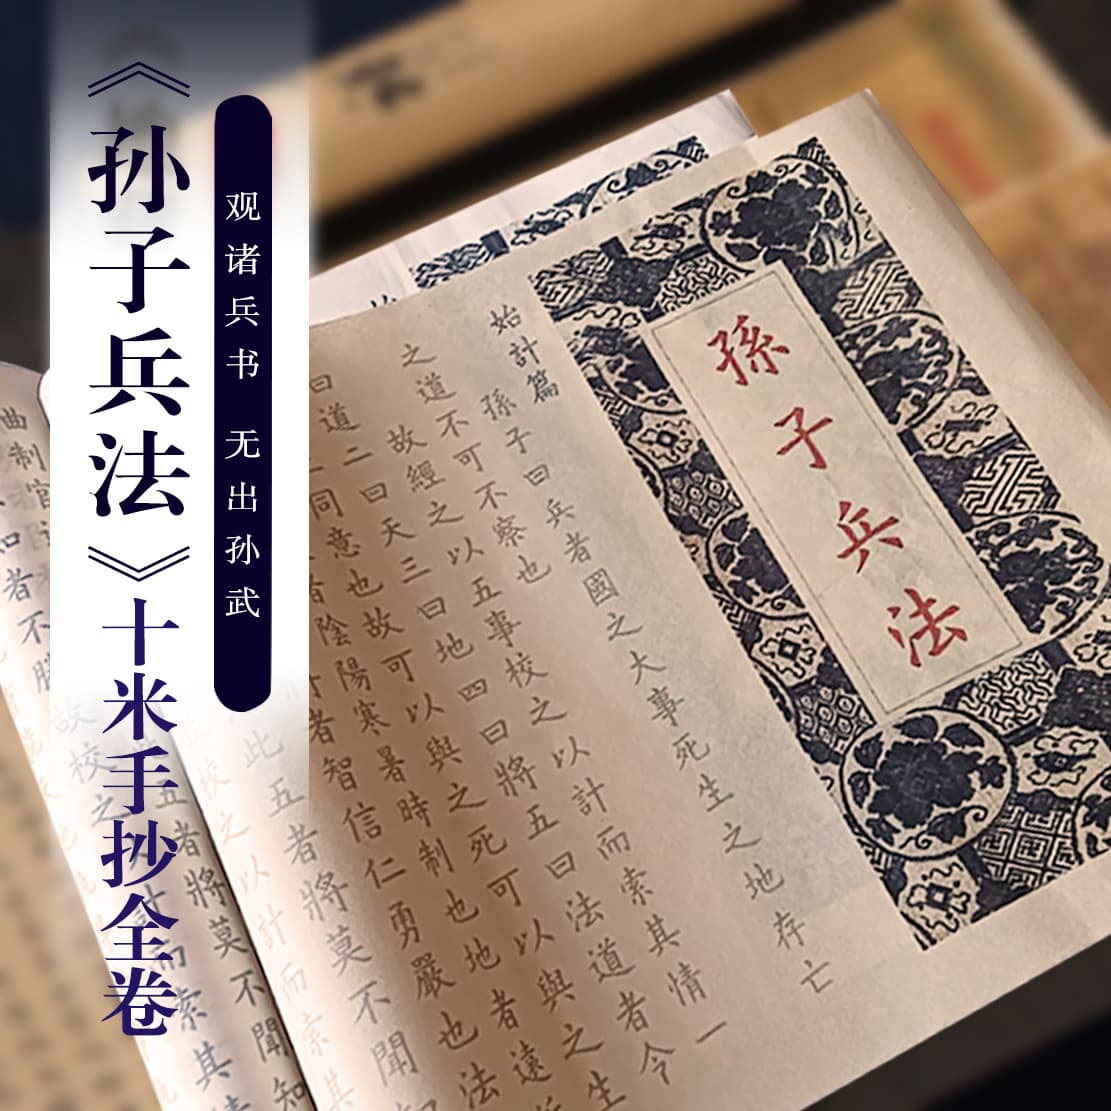 《孙子兵法》十米手抄全卷
观诸兵书 无出孙武
孫子兵法
始計篇
孫子曰兵者國之大事死生之地存亡
之道不可不察也
故經之以五事校之以計而索其情一
曰道二曰天三曰地四曰將五曰法道者令
同意也故可以與之死可以與之生
者陰陽寒暑時制也地者遠
者智信仁勇嚴也法
此五者將莫不聞
校之以計而索其
曲制官
者不勝
五者將莫不聞知
故校之
計而索其情